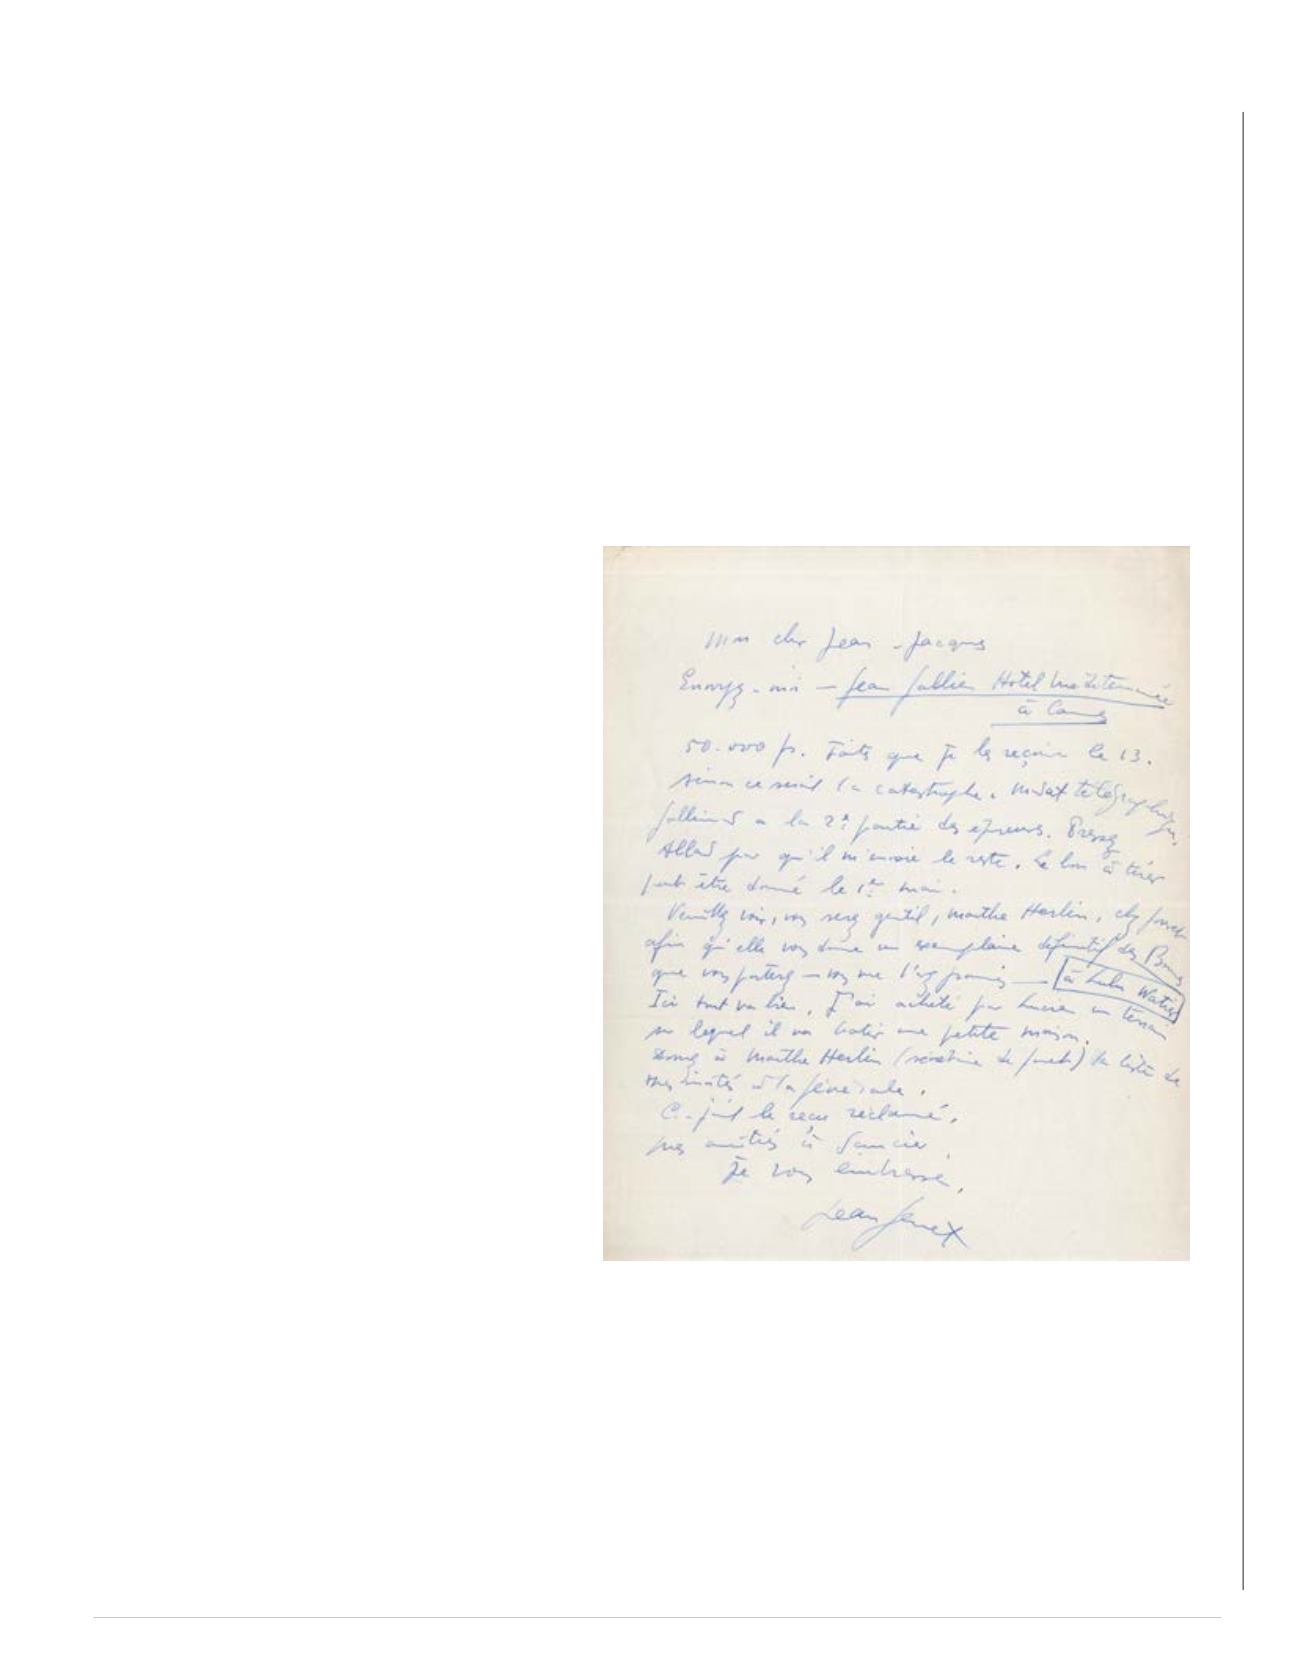 Mon cher Jean-Jacques
Envoyez-moi — Jean Gallien Hotel Méditerranée
à Cannes
50.000 fs. Faites que je les reçoive le 13.
sinon ce serait la catastrophe. Mdat télégraphique.
Gallimard a la 2e partie des épreuves. Pressez
pour qu'il m'envoie le reste. Le bon à tirer
peut être donné le 1er mai.
Veuillez voir, vous serez gentil, Marthe Herlin, chez Jouvet
afin qu'elle vous donne un exemplaire définitif des Bonnes
que vous porterez — vous me l'avez promis — à Lulu Watier
Ici tout va bien. J'ai acheté pour Lucien un terrain
sur lequel il va batir une petite maison.
Donnez à Marthe Herlin (secrétaire de Jouvet) la liste de
mes invités à la générale.
Ci-joint le reçu réclamé.
mes amitiés à
Je vous embrasse.
Jean Genet